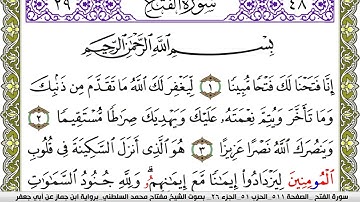 ٢٩ سُورَةُ الفَتْحِ ٤٨
بِسْمِ اللَّهِ الرَّحْمَٰنِ الرَّحِيمِ
إِنَّا فَتَحْنَا لَكَ فَتْحًا مُّبِينًا ١ لِّيَغْفِرَ لَكَ اللَّهُ مَا تَقَدَّمَ مِن ذَنۢبِكَ
وَمَا تَأَخَّرَ وَيُتِمَّ نِعْمَتَهُۥ عَلَيْكَ وَيَهْدِيَكَ صِرَٰطًا مُّسْتَقِيمًا ٢
وَيَنصُرَكَ اللَّهُ نَصْرًا عَزِيزًا ٣ هُوَ الَّذِي أَنزَلَ السَّكِينَةَ فِي قُلُوبِ
الْمُومِنِينَ لِيَزْدَادُوا إِيمَٰنًا مَّعَ إِيمَٰنِهِمُۥ وَلِلَّهِ جُنُودُ السَّمَٰوَٰتِ
سورة الفتح . الصفحة ٥١١ الحزب ٥١ الجزء ٢٦ . بصوت الشيخ مفتاح محمد السلطني برواية ابن جماز عن أبي جعفر